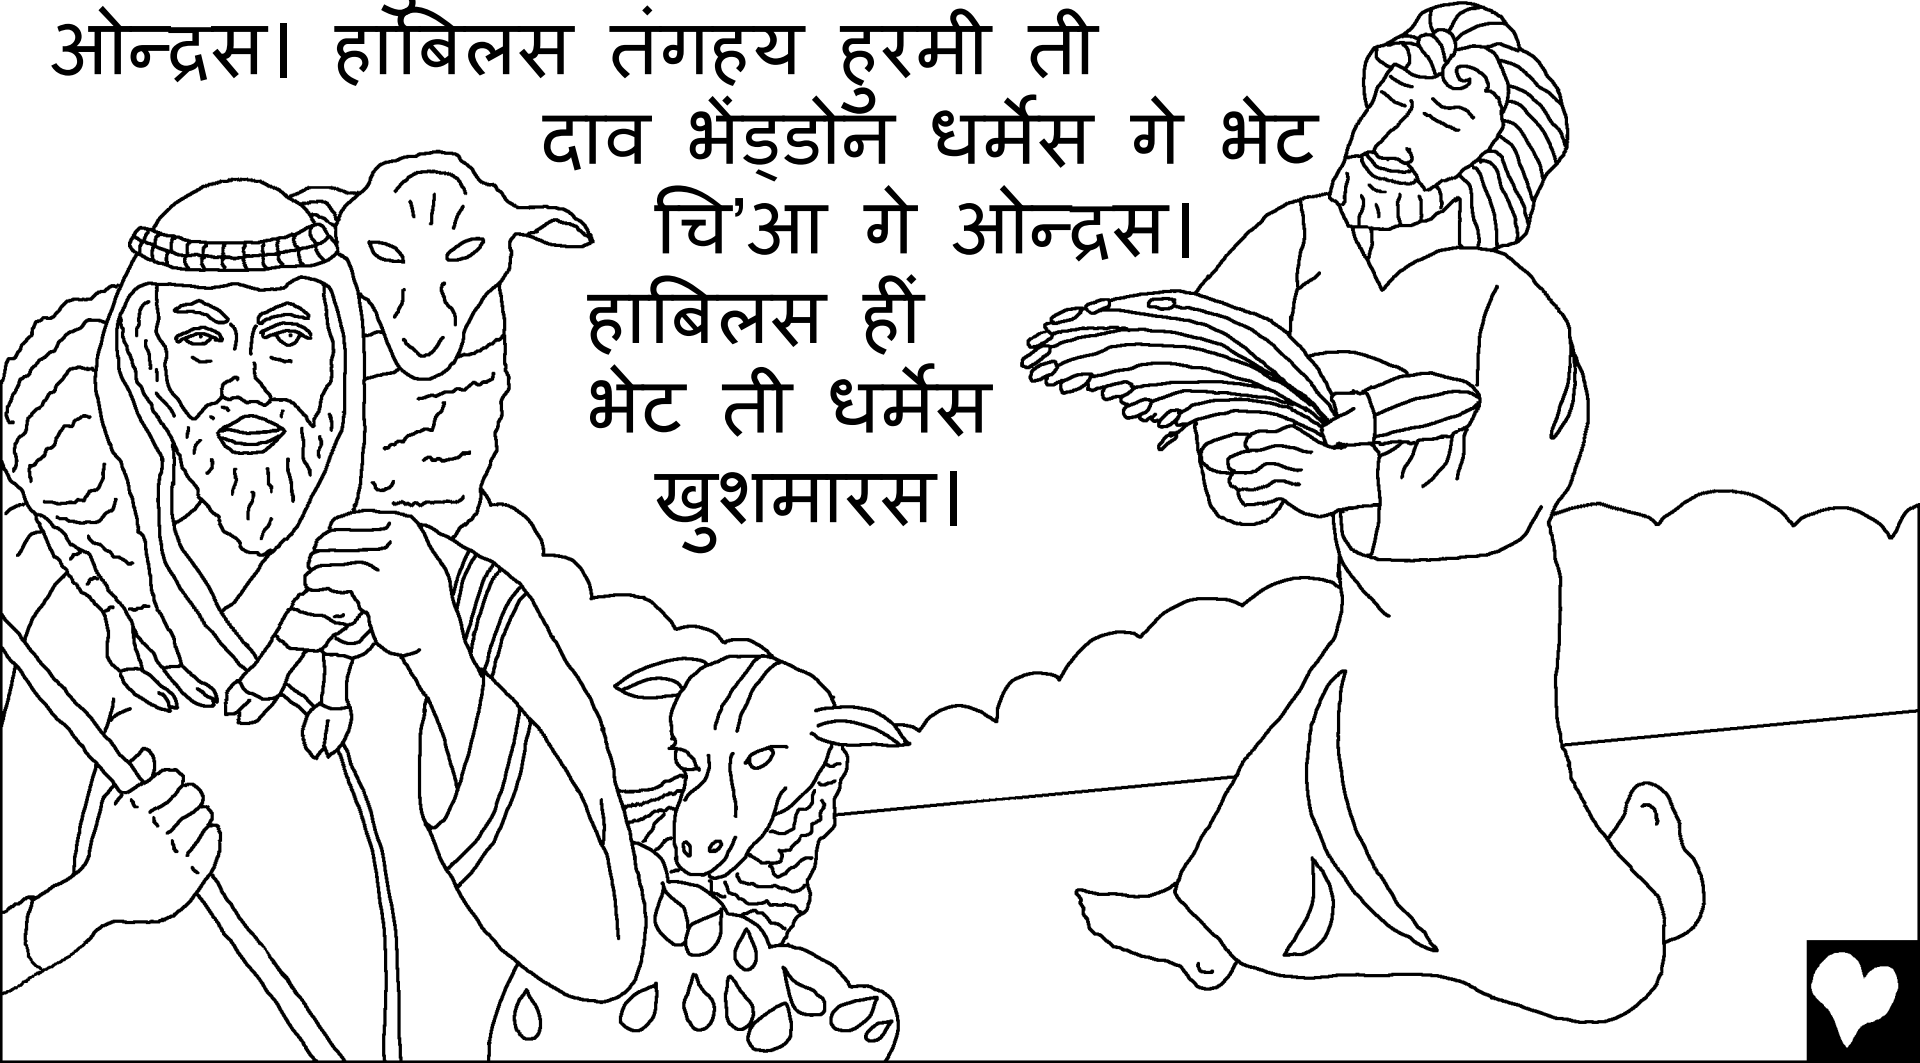 ओन्द्रस। हाबिलस तंगहय हुरमी ती
दाव भेंड्डोन धर्मेस गे भेट
चि’आ गे ओन्द्रस।
हाबिलस हीं
भेट ती धर्मेस
खुशमारस।